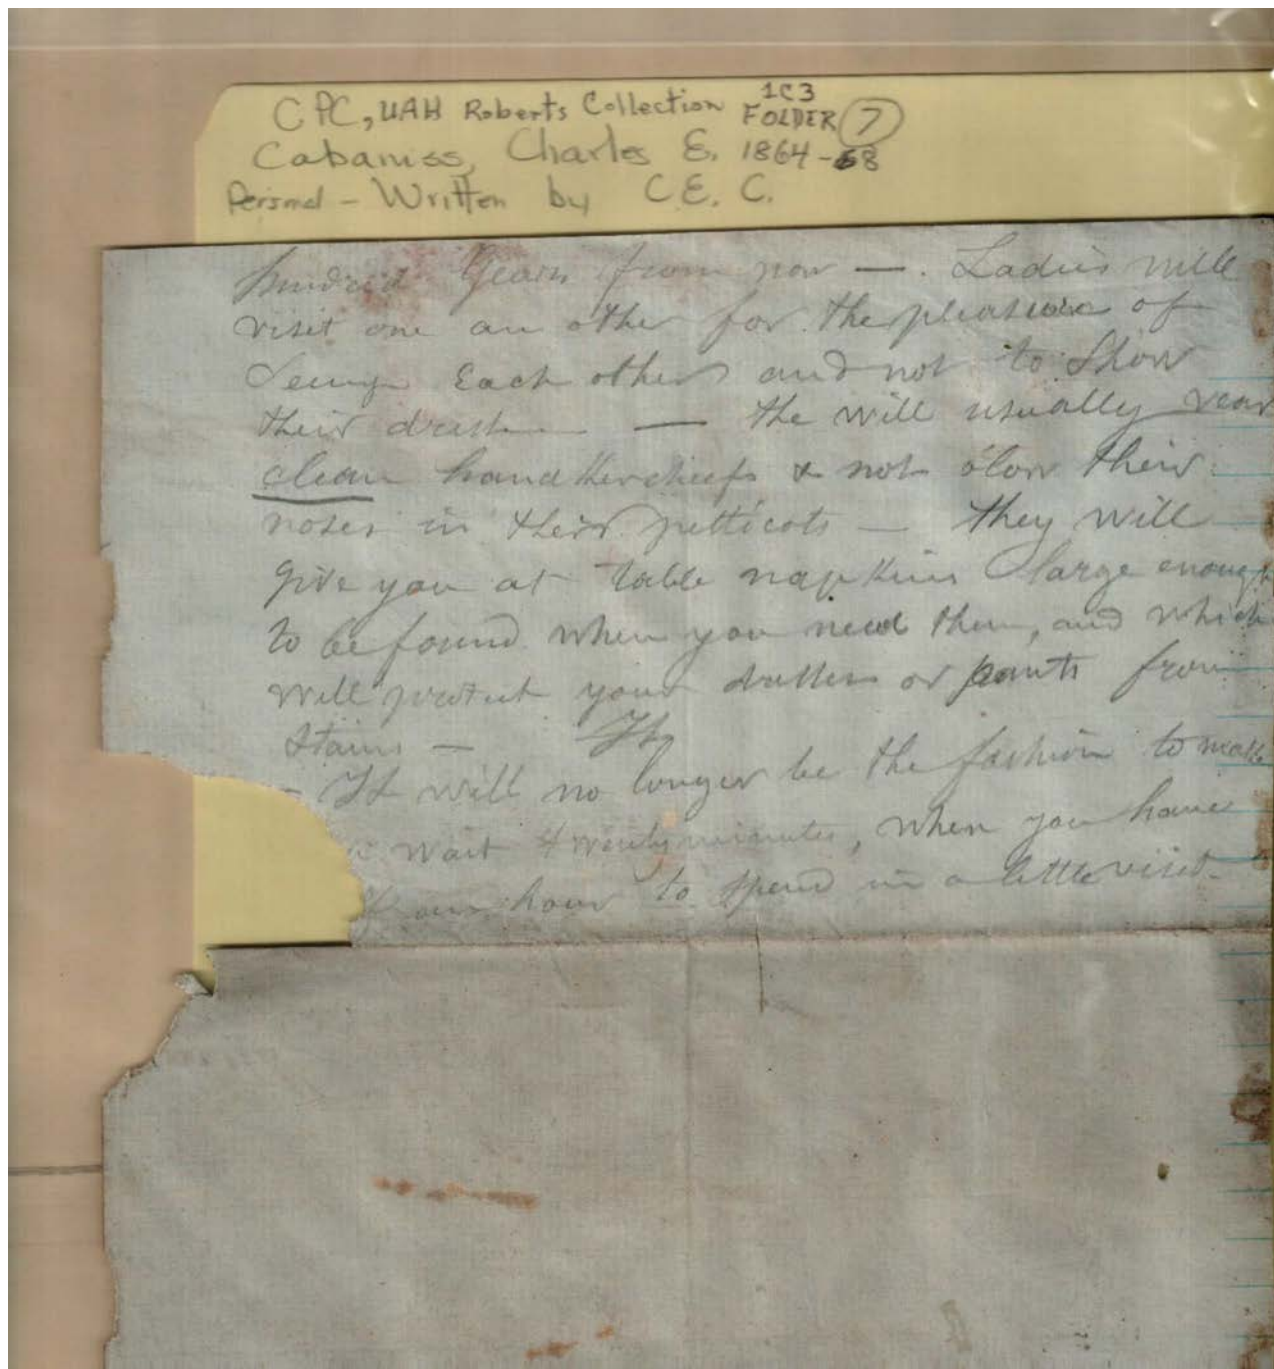 CPC, UAH Roberts Collection 1C3
FOLDER 7
Cabaniss, Charles E. 1864-68
Personal - Written by C.E.C.
hundred Years from now —. Ladies will
visit one an other for the pleasure of
Seeing Each other and not to Show
their dresses — the will usually wear
clean handkerchiefs & not blow their
noses in their petticots — they will
give you at table napkins large enough
to be found when you need them, and which
will protect your dresses or pants from
Stains — It
- It will no longer be the fashion to make
wait twenty minutes, when you have
an hour to spend in a little visit-